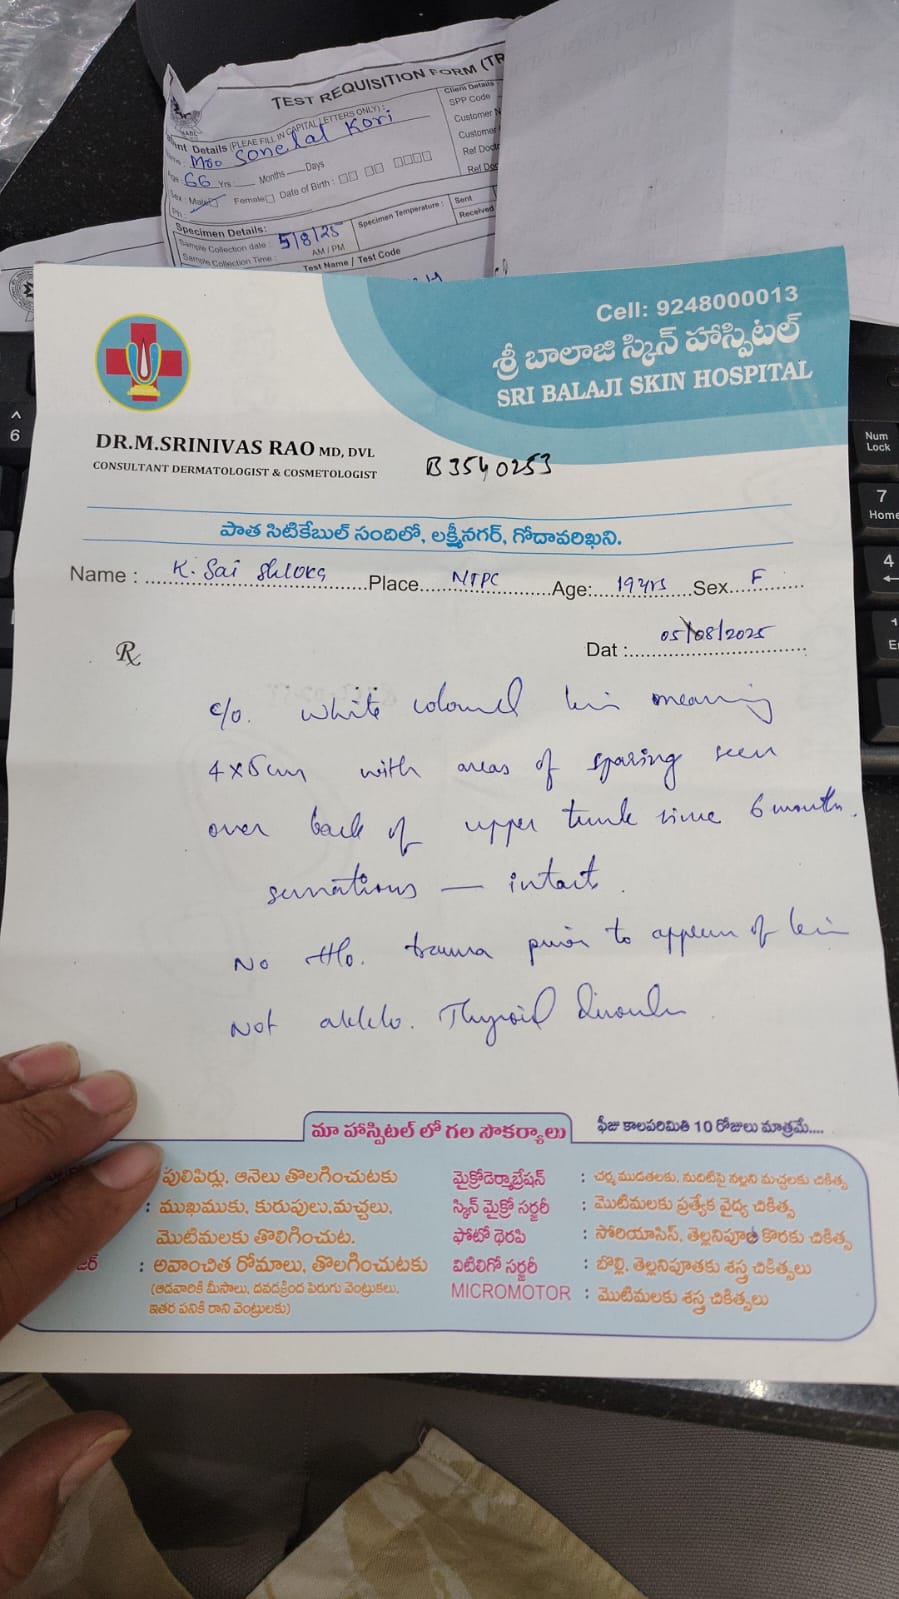 TEST REQUISITION FORM (TR
Client Details
SPP Code
Customer N
Customer
Ref Doct
Ref Doc
ent Details (PLEAE FILL IN CAPITAL LETTERS ONLY) :
Moo Sonelal Kori
Age : 66 Yrs Months Days
Sex : Male Female Date of Birth :
Ph :
Specimen Details:
Sample Collection date : 5/8/25
Specimen Temperature :
Sent
Received
Sample Collection Time : AM / PM
Test Name / Test Code
Cell: 9248000013
శ్రీ బాలాజి స్కిన్ హాస్పిటల్
SRI BALAJI SKIN HOSPITAL
DR.M.SRINIVAS RAO MD, DVL
CONSULTANT DERMATOLOGIST & COSMETOLOGIST
B3540253
పాత సిటికేబుల్ సందిలో, లక్ష్మీనగర్, గోదావరిఖని.
Name : K. Sai Shloka Place NTPC Age: 19yrs Sex F
Rx
Dat : 05/08/2025
c/o. white coloured measuring
4x5cm with areas of sparing seen
over back of upper trunk since 6 months.
sensations — intact.
No H/o. trauma prior to of
Not Thyroid disorder
మా హాస్పిటల్ లో గల సౌకర్యాలు
ఫీజు కాలపరిమితి 10 రోజులు మాత్రమే....
పులిపిర్లు, ఆనెలు తొలగించుటకు
: ముఖముకు, కురుపులు,మచ్చలు,
మొటిమలకు తొలిగించుట.
జర్ : అవాంచిత రోమాలు, తొలగించుటకు
(ఆడవారికి మీసాలు, దవడక్రింద పెరుగు వెంట్రుకలు,
ఇతర పనికి రాని వెంట్రులకు)
మైక్రోడెర్మాబ్రేషన్ : చర్మ ముడతలకు, నుదిటిపై నల్లని మచ్చలకు చికిత్స
స్కిన్ మైక్రో సర్జరీ : మొటిమలకు ప్రత్యేక వైద్య చికిత్స
ఫోటో థెరపి : సోరియాసిస్, తెల్లనిపూత కొరకు చికిత్స
విటిలిగో సర్జరీ : బొల్లి, తెల్లనిపూతకు శస్త్ర చికిత్సలు
MICROMOTOR : మొటిమలకు శస్త్ర చికిత్సలు
6
Num
Lock
7
Home
4
1